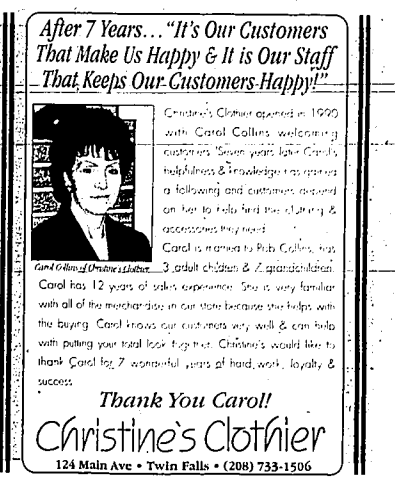 After 7 Years... "It's Our Customers
That Make Us Happy & It is Our Staff
That Keeps Our Customers Happy!"
Christine's Clothier opened in 1990
with Carol Collins welcoming
customers. Seven years later Carol's
helpfulness & knowledge has gained
a following and customers depend
on her to help find the clothing &
accessories they need.
Carol is married to Rob Collins, has
3 adult children & grandchildren.
Carol Collins of Christine's Clothier
Carol has 12 years of sales experience. She is very familiar
with all of the merchandise in our store because she helps with
the buying. Carol knows our customers very well & can help
with putting your total look together. Christine's would like to
thank Carol for 7 wonderful years of hard work, loyalty &
success.
Thank You Carol!
Christine's Clothier
124 Main Ave • Twin Falls • (208) 733-1506